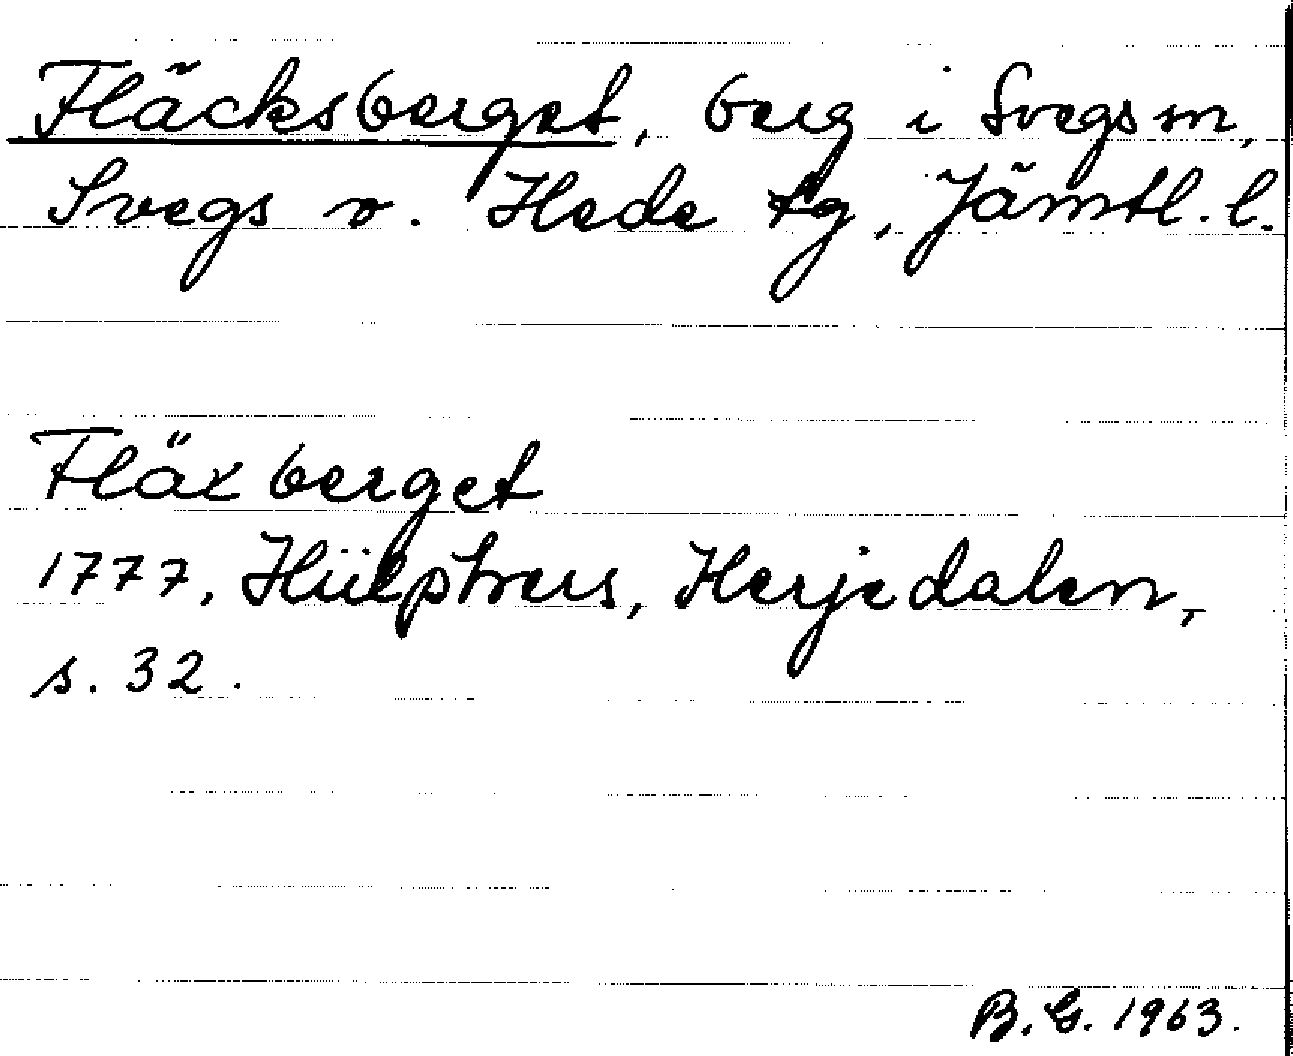 Fläcksberget, berg i Svegs sn,
Svegs o. Hede tg, Jämtl. l.
Fläxberget
1777, Hülphers, Herjedalen,
s. 32.
B.G. 1963.